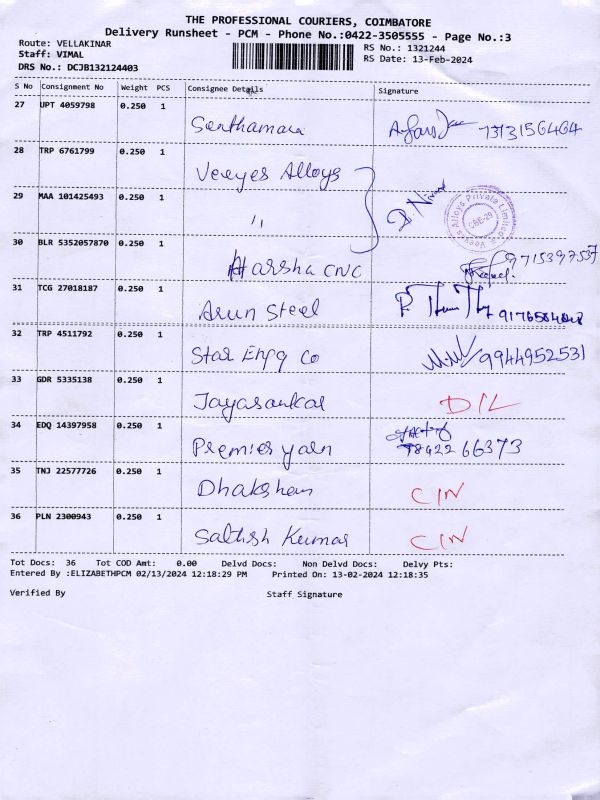 THE PROFESSIONAL COURIERS, COIMBATORE
Delivery Runsheet - PCM - Phone No.:0422-3505555 - Page No.:3
Route: VELLAKINAR
RS No.: 1321244
Staff: VIMAL
RS Date: 13-Feb-2024
DRS No.: DCJB132124403
S No Consignment No Weight PCS Consignee Details Signature
27 UPT 4059798 0.250 1
Senthamara 7373156464
28 TRP 6761799 0.250 1
Veeyes Alloys
29 MAA 101425493 0.250 1
"
30 BLR 5352057870 0.250 1
Harsha CNC 9715397537
31 TCG 27018187 0.250 1
Arun Steel
32 TRP 4511792 0.250 1
Star Engg Co 9944952531
33 GDR 5335138 0.250 1
Jayasankar D/L
34 EDQ 14397958 0.250 1
Premier yarn 78422 66373
35 TNJ 22577726 0.250 1
Dhakshan CIN
36 PLN 2300943 0.250 1
Sathish Kumar CIN
Tot Docs: 36 Tot COD Amt: 0.00 Delvd Docs: Non Delvd Docs: Delvy Pts:
Entered By :ELIZABETHPCM 02/13/2024 12:18:29 PM Printed On: 13-02-2024 12:18:35
Verified By Staff Signature